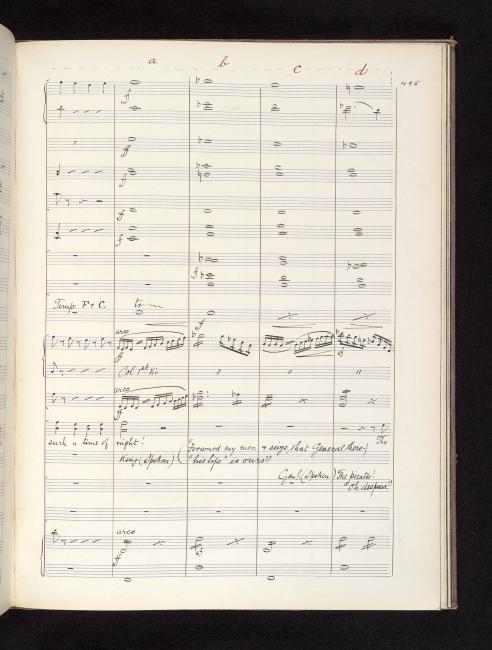 a b c d
495
ff
ff
ff
ff
f
f
Temp. P + C. tr
ff
arco
ff
Col 1st Vo " "
arco
ff
such a time of night! The
King (Spoken) ("Forward my men & seize that General there-)
"his life" is ours")
Genl. (Spoken) The pirates!
"Oh despair"
arco
f